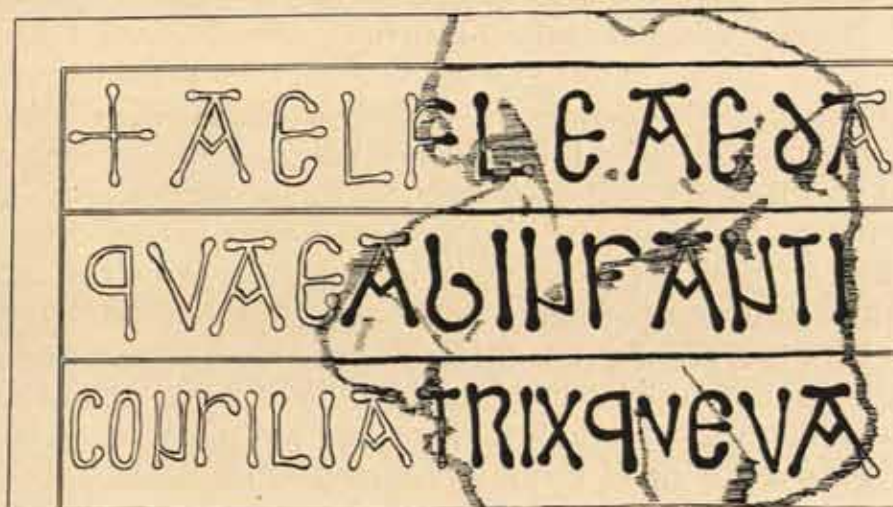 + AELFLE.AEdA
qVAEAbINFANTI
CONSILIATRIXqVEVA